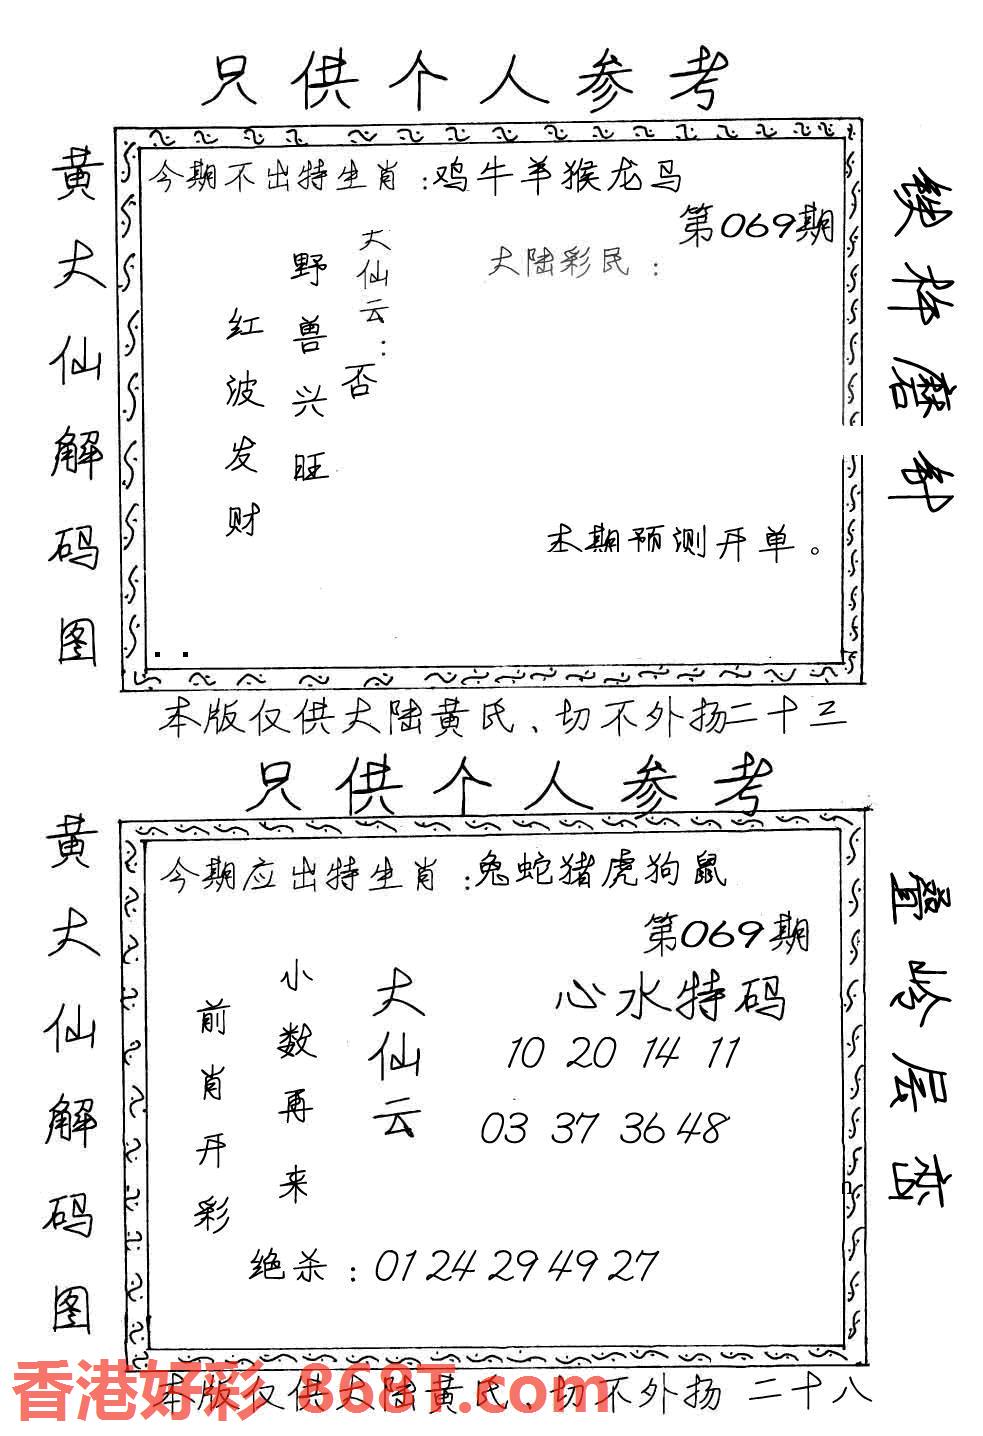 只供个人参考
黄大仙解码图
今期不出特生肖：鸡牛羊猴龙马
第069期
大陆彩民：
大仙云：否
野兽兴旺
红波发财
本期预测开单。
铁杵磨针
本版仅供大陆黄氏、切不外扬二十三
只供个人参考
黄大仙解码图
今期应出特生肖：兔蛇猪虎狗鼠
第069期
心水特码
10 20 14 11
03 37 36 48
大仙云
小数再来
前肖开彩
绝杀：01 24 29 49 27
叠岭层峦
本版仅供大陆黄氏、切不外扬 二十八
香港好彩 868T.com